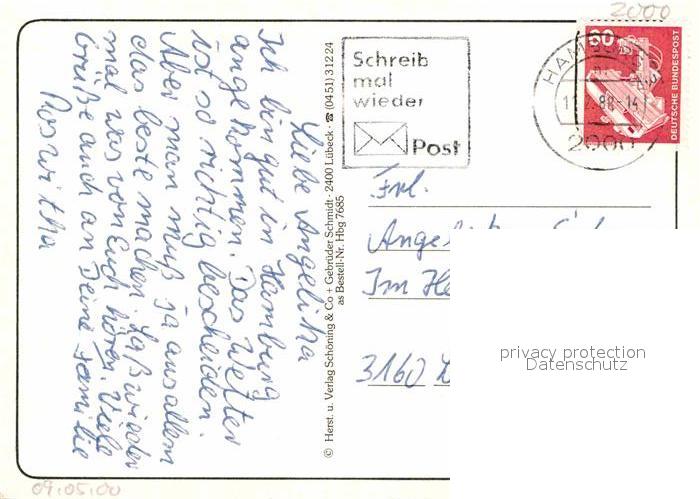 2000
Liebe Angelika
Ich bin gut in Hamburg
angekommen. Das Wetter
ist so richtig bescheiden.
Aber man muß ja aus allem
das beste machen. Laß wieder
mal was von Euch hören. Viele
Grüße auch an Deine Familie
Roswitha
© Herst. u. Verlag Schöning & Co + Gebrüder Schmidt · 2400 Lübeck · ☎ (04 51) 3 12 24
as Bestell-Nr. Hbg 7685
Schreib
mal
wieder
Post
HAMBURG
88-14
2000
60
DEUTSCHE BUNDESPOST
Frl.
Im
3160
privacy protection
Datenschutz
09.05.00